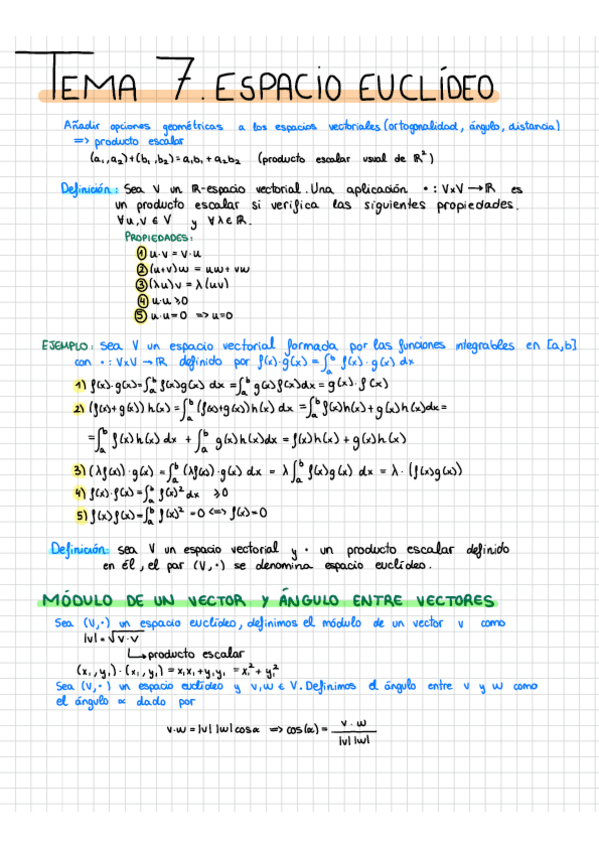 TEMA 7. ESPACIO EUCLÍDEO
Añadir opciones geométricas a los espacios vectoriales (ortogonalidad, ángulo, distancia)
=> producto escalar
(a₁,a₂)+(b₁,b₂)=a₁b₁+a₂b₂ (producto escalar usual de ℝ²)
Definición: Sea V un ℝ-espacio vectorial. Una aplicación • : V×V → ℝ es
un producto escalar si verifica las siguientes propiedades.
∀u,v ∈ V y ∀λ ∈ ℝ.
PROPIEDADES:
① u·v = v·u
② (u+v)w = uw + vw
③ (λu)v = λ(uv)
④ u·u ≥ 0
⑤ u·u=0 => u=0
EJEMPLO: Sea V un espacio vectorial formada por las funciones integrables en [a,b]
con • : V×V → ℝ definido por f(x)·g(x) = ∫ₐᵇ f(x)·g(x) dx
1) f(x)·g(x)=∫ₐᵇ f(x)g(x) dx = ∫ₐᵇ g(x)f(x)dx = g(x)·f(x)
2) (f(x)+g(x)) h(x) = ∫ₐᵇ (f(x)+g(x))h(x) dx = ∫ₐᵇ f(x)h(x)+g(x)h(x)dx=
=∫ₐᵇ f(x)h(x) dx + ∫ₐᵇ g(x)h(x)dx = f(x)h(x) + g(x)h(x)
3) (λf(x))·g(x) = ∫ₐᵇ (λf(x))·g(x) dx = λ∫ₐᵇ f(x)g(x) dx = λ·(f(x)g(x))
4) f(x)·f(x)=∫ₐᵇ f(x)² dx ≥0
5) f(x)f(x)=∫ₐᵇ f(x)² =0 <=> f(x)=0
Definición: sea V un espacio vectorial y · un producto escalar definido
en él, el par (V,·) se denomina espacio euclídeo.
MÓDULO DE UN VECTOR Y ÁNGULO ENTRE VECTORES
Sea (V,·) un espacio euclídeo, definimos el módulo de un vector v como
|v| = √v·v
↳ producto escalar
(x₁,y₁)·(x₁,y₁) = x₁x₁+y₁y₁ = x₁²+y₁²
Sea (V,·) un espacio euclídeo y v,w ∈ V. Definimos el ángulo entre v y w como
el ángulo ∝ dado por
v·w = |v| |w| cosα => cos(α) = v·w / |v| |w|